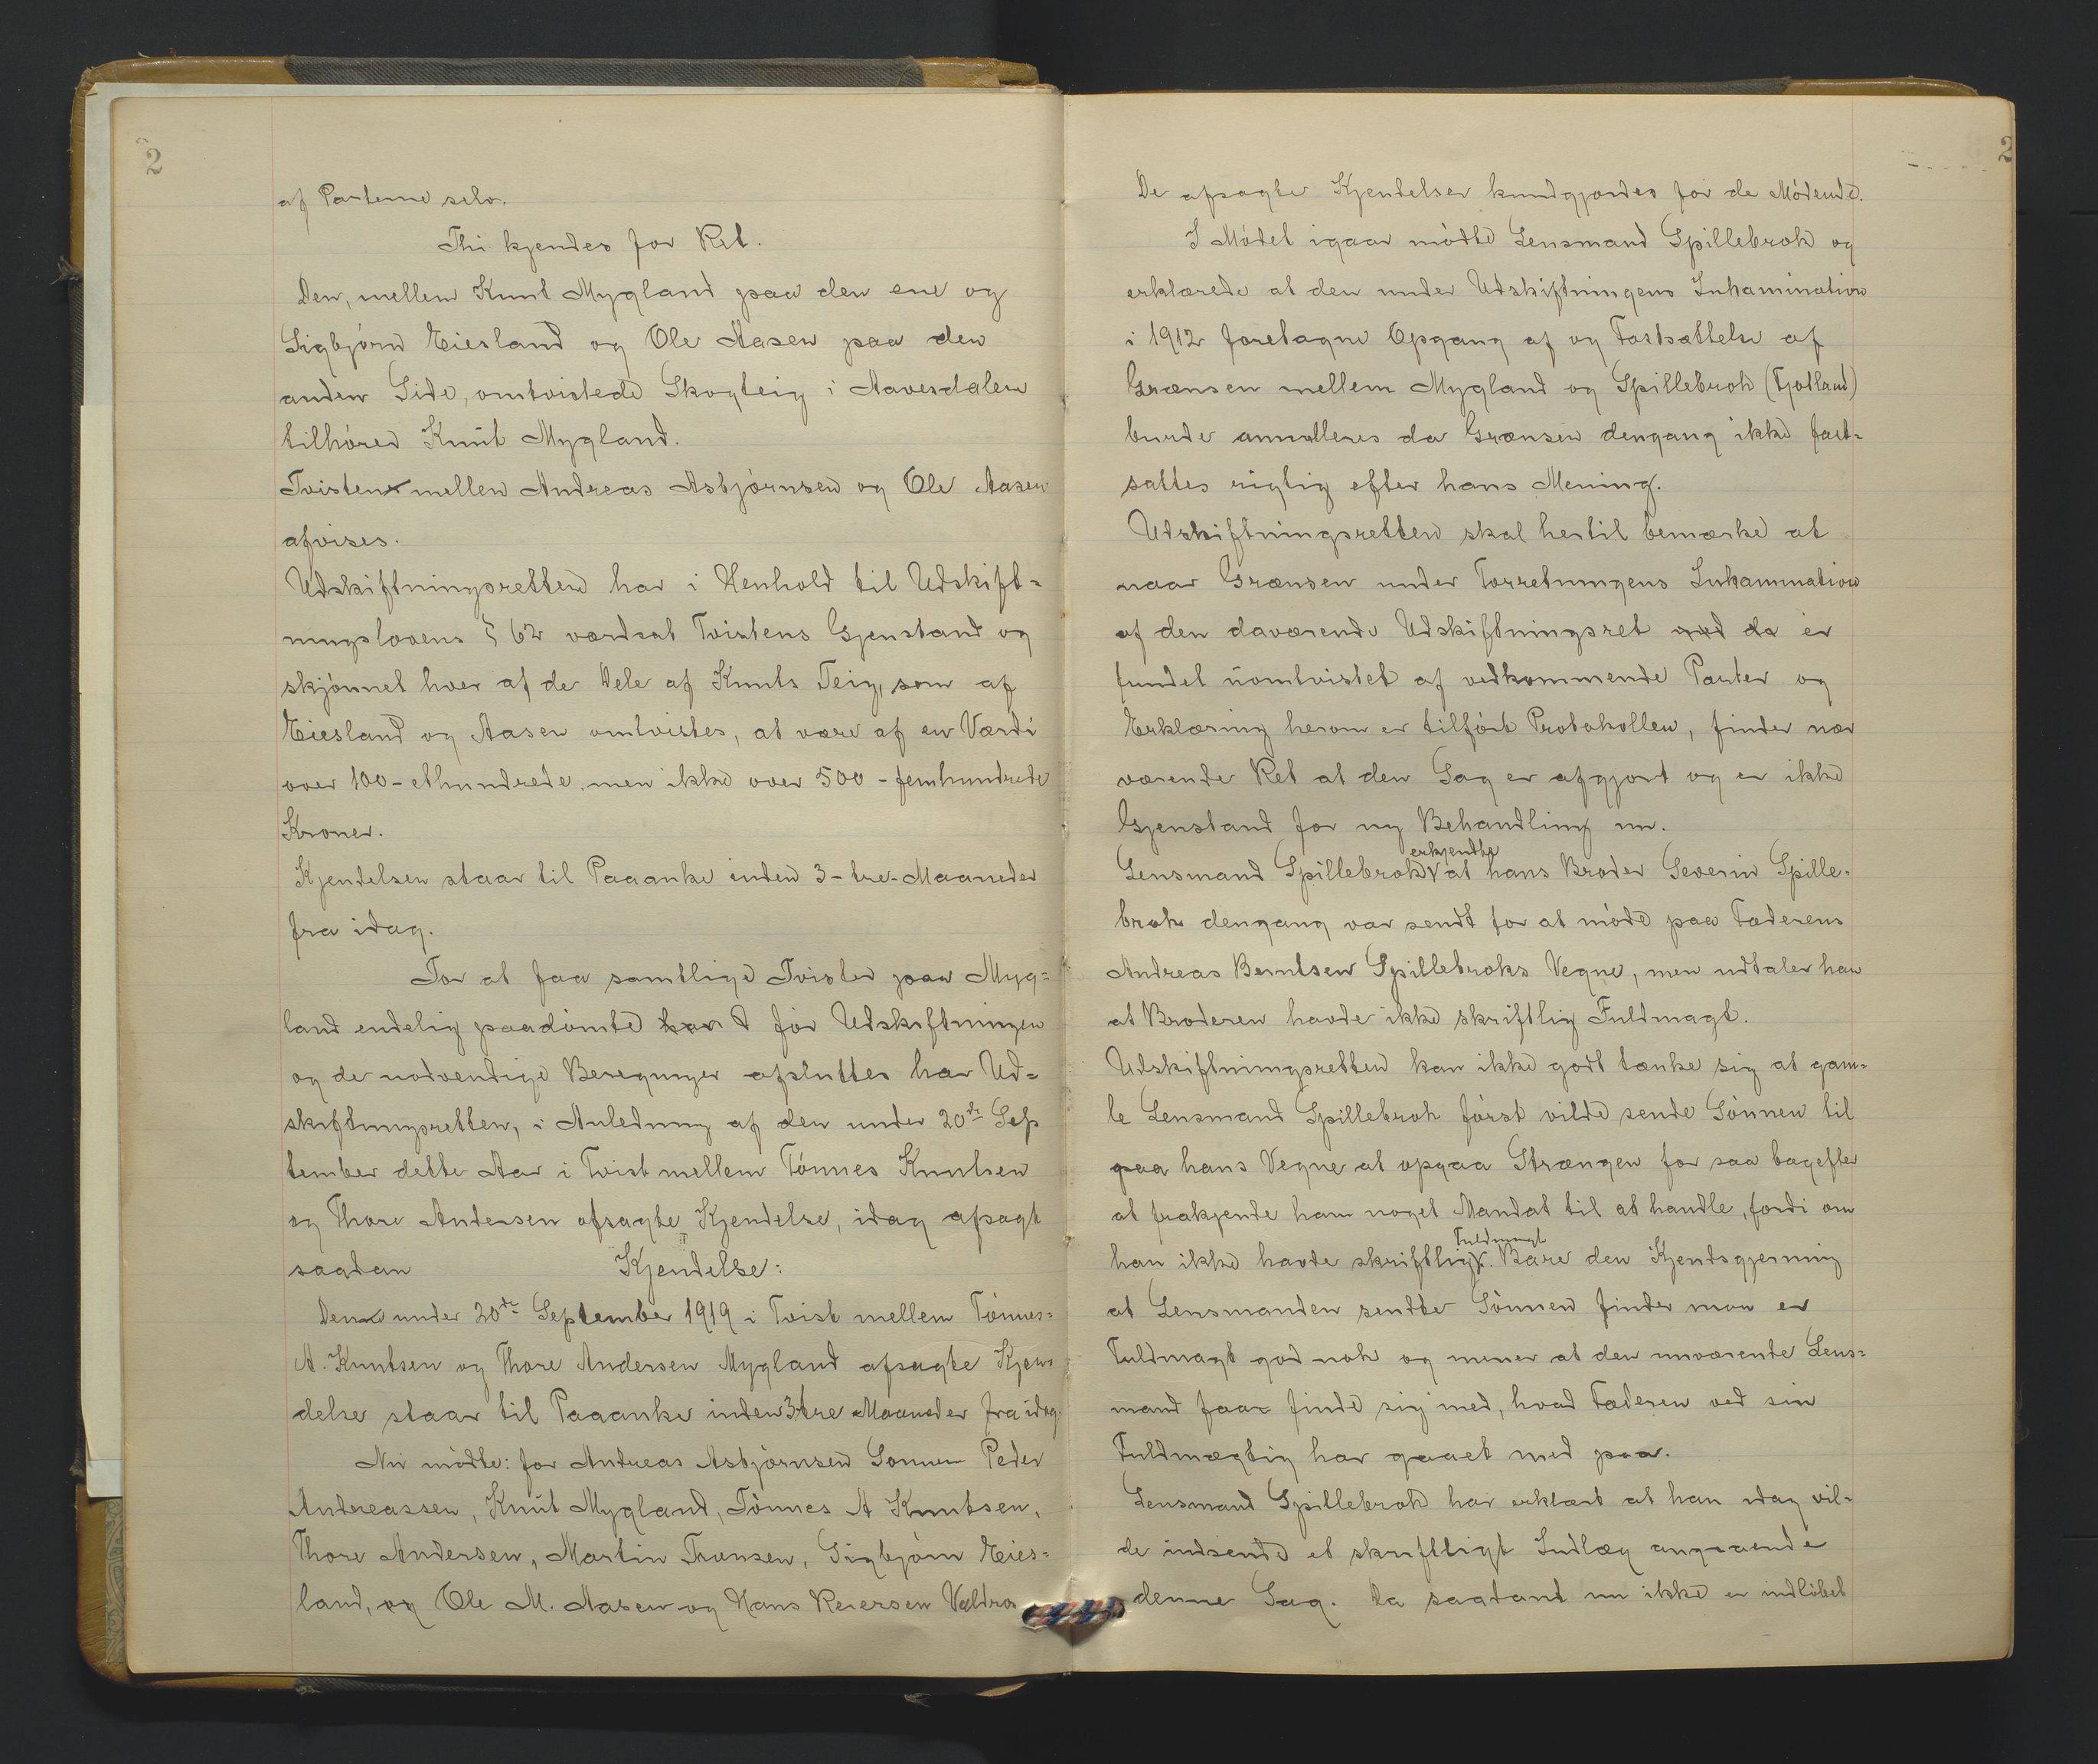 2
af Parterne selv.
Thi kjendes for Ret.
Den, mellem Knut Mygland paa den ene og
Sigbjørn Eiesland og Ole Aasen paa den
anden Side, omtvistede Skogteig i Aavesdalen
tilhører Knut Mygland.
Tvisten mellem Andreas Asbjørnsen og Ole Aasen
afvises.
Udskiftningsretten har i Henhold til Udskift-
ningslovens § 62 værdsat Tvistens Gjenstand og
skjønnet hver af de Dele af Knuts Teig, som af
Eiesland og Aasen omtvistes, at være af en Værdi
over 100 - ethundrede, men ikke over 500 - femhundrede
Kroner.
Kjendelsen staar til Paaanke inden 3 - tre - Maaneder
fra idag.
For at faa samtlige Tvister paa Myg-
land endelig paadømte før Udskiftningen
og de nødvendige Beregninger afsluttes har Ud-
skiftningsretten, i Anledning af den under 20de Sep
tember dette Aar i Tvist mellem Tønnes Knutsen
og Thore Andersen afsagte Kjendelse, idag afsagt
saadan Kjendelse:
Den under 20de September 1919 i Tvist mellem Tønnes
A. Knutsen og Thore Andersen Mygland afsagte Kjen
delse staar til Paaanke inden 3 tre Maaneder fra idag.
Nu mødte: for Andreas Asbjørnsen Sønnen Peder
Andreassen, Knut Mygland, Tønnes A Knutsen,
Thore Andersen, Martin Transen, Sigbjørn Eies-
land, og Ole M. Aasen og Hans Reiersen
2
De afsagte Kjendelser kundgjordes for de Mødende.
I Mødet igaar mødte Lensmand Spillebrok og
erklærede at den under Udskiftningens Inkamination
i 1912 foretagne Opgang af og Fastsættelse af
Grænsen mellem Mygland og Spillebrok (Fjotland)
burde annulleres da Grænsen dengang ikke fast-
sattes rigtig efter hans Mening.
Udskiftningsretten skal hertil bemærke at
naar Grænsen under Forretningens Inkamination
af den daværende Udskiftningsret er
fundet uomtvistet af vedkommende Parter og
Erklæring herom er tilført Protokollen, finder nær
værende Ret at den Sag er afgjort og er ikke
Gjenstand for ny Behandling nu.
Lensmand Spillebrok erkjendte at hans Broder Severin Spille-
brok dengang var sendt for at møde paa Faderens
Andreas Berntsen Spillebroks Vegne, men udtaler han
at Broderen havde ikke skriftlig Fuldmagt.
Udskiftningsretten kan ikke godt tænke sig at gam-
le Lensmand Spillebrok først vilde sende Sønnen til
paa hans Vegne at opgaa Strængen for saa bagefter
at frakjende ham noget Mandat til at handle, fordi om
han ikke havde skriftlig Fuldmagt. Bare den Kjendsgjerning
at Lensmanden sendte Sønnen finder man er
Fuldmagt god nok og mener at den nuværende Lens-
mand faar finde sig med, hvad Faderen ved sin
Fuldmægtig har gaaet med paa.
Lensmand Spillebrok har erklært at han idag vil-
de indsende et skriftligt Indlæg angaaende
denne Sag. Da saadant nu ikke er indløbet